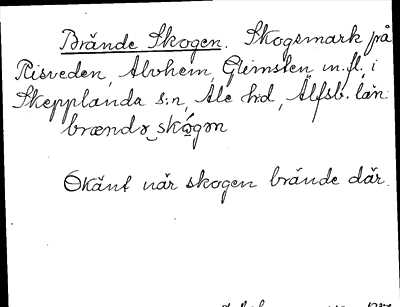 Brände Skogen. Skogsmark på
Risveden, Alvhem, Grimsken m.fl. i
Skepplanda s:n, Ale h:d, Älfsb. län
brændə skógən
Okänt när skogen brände där.